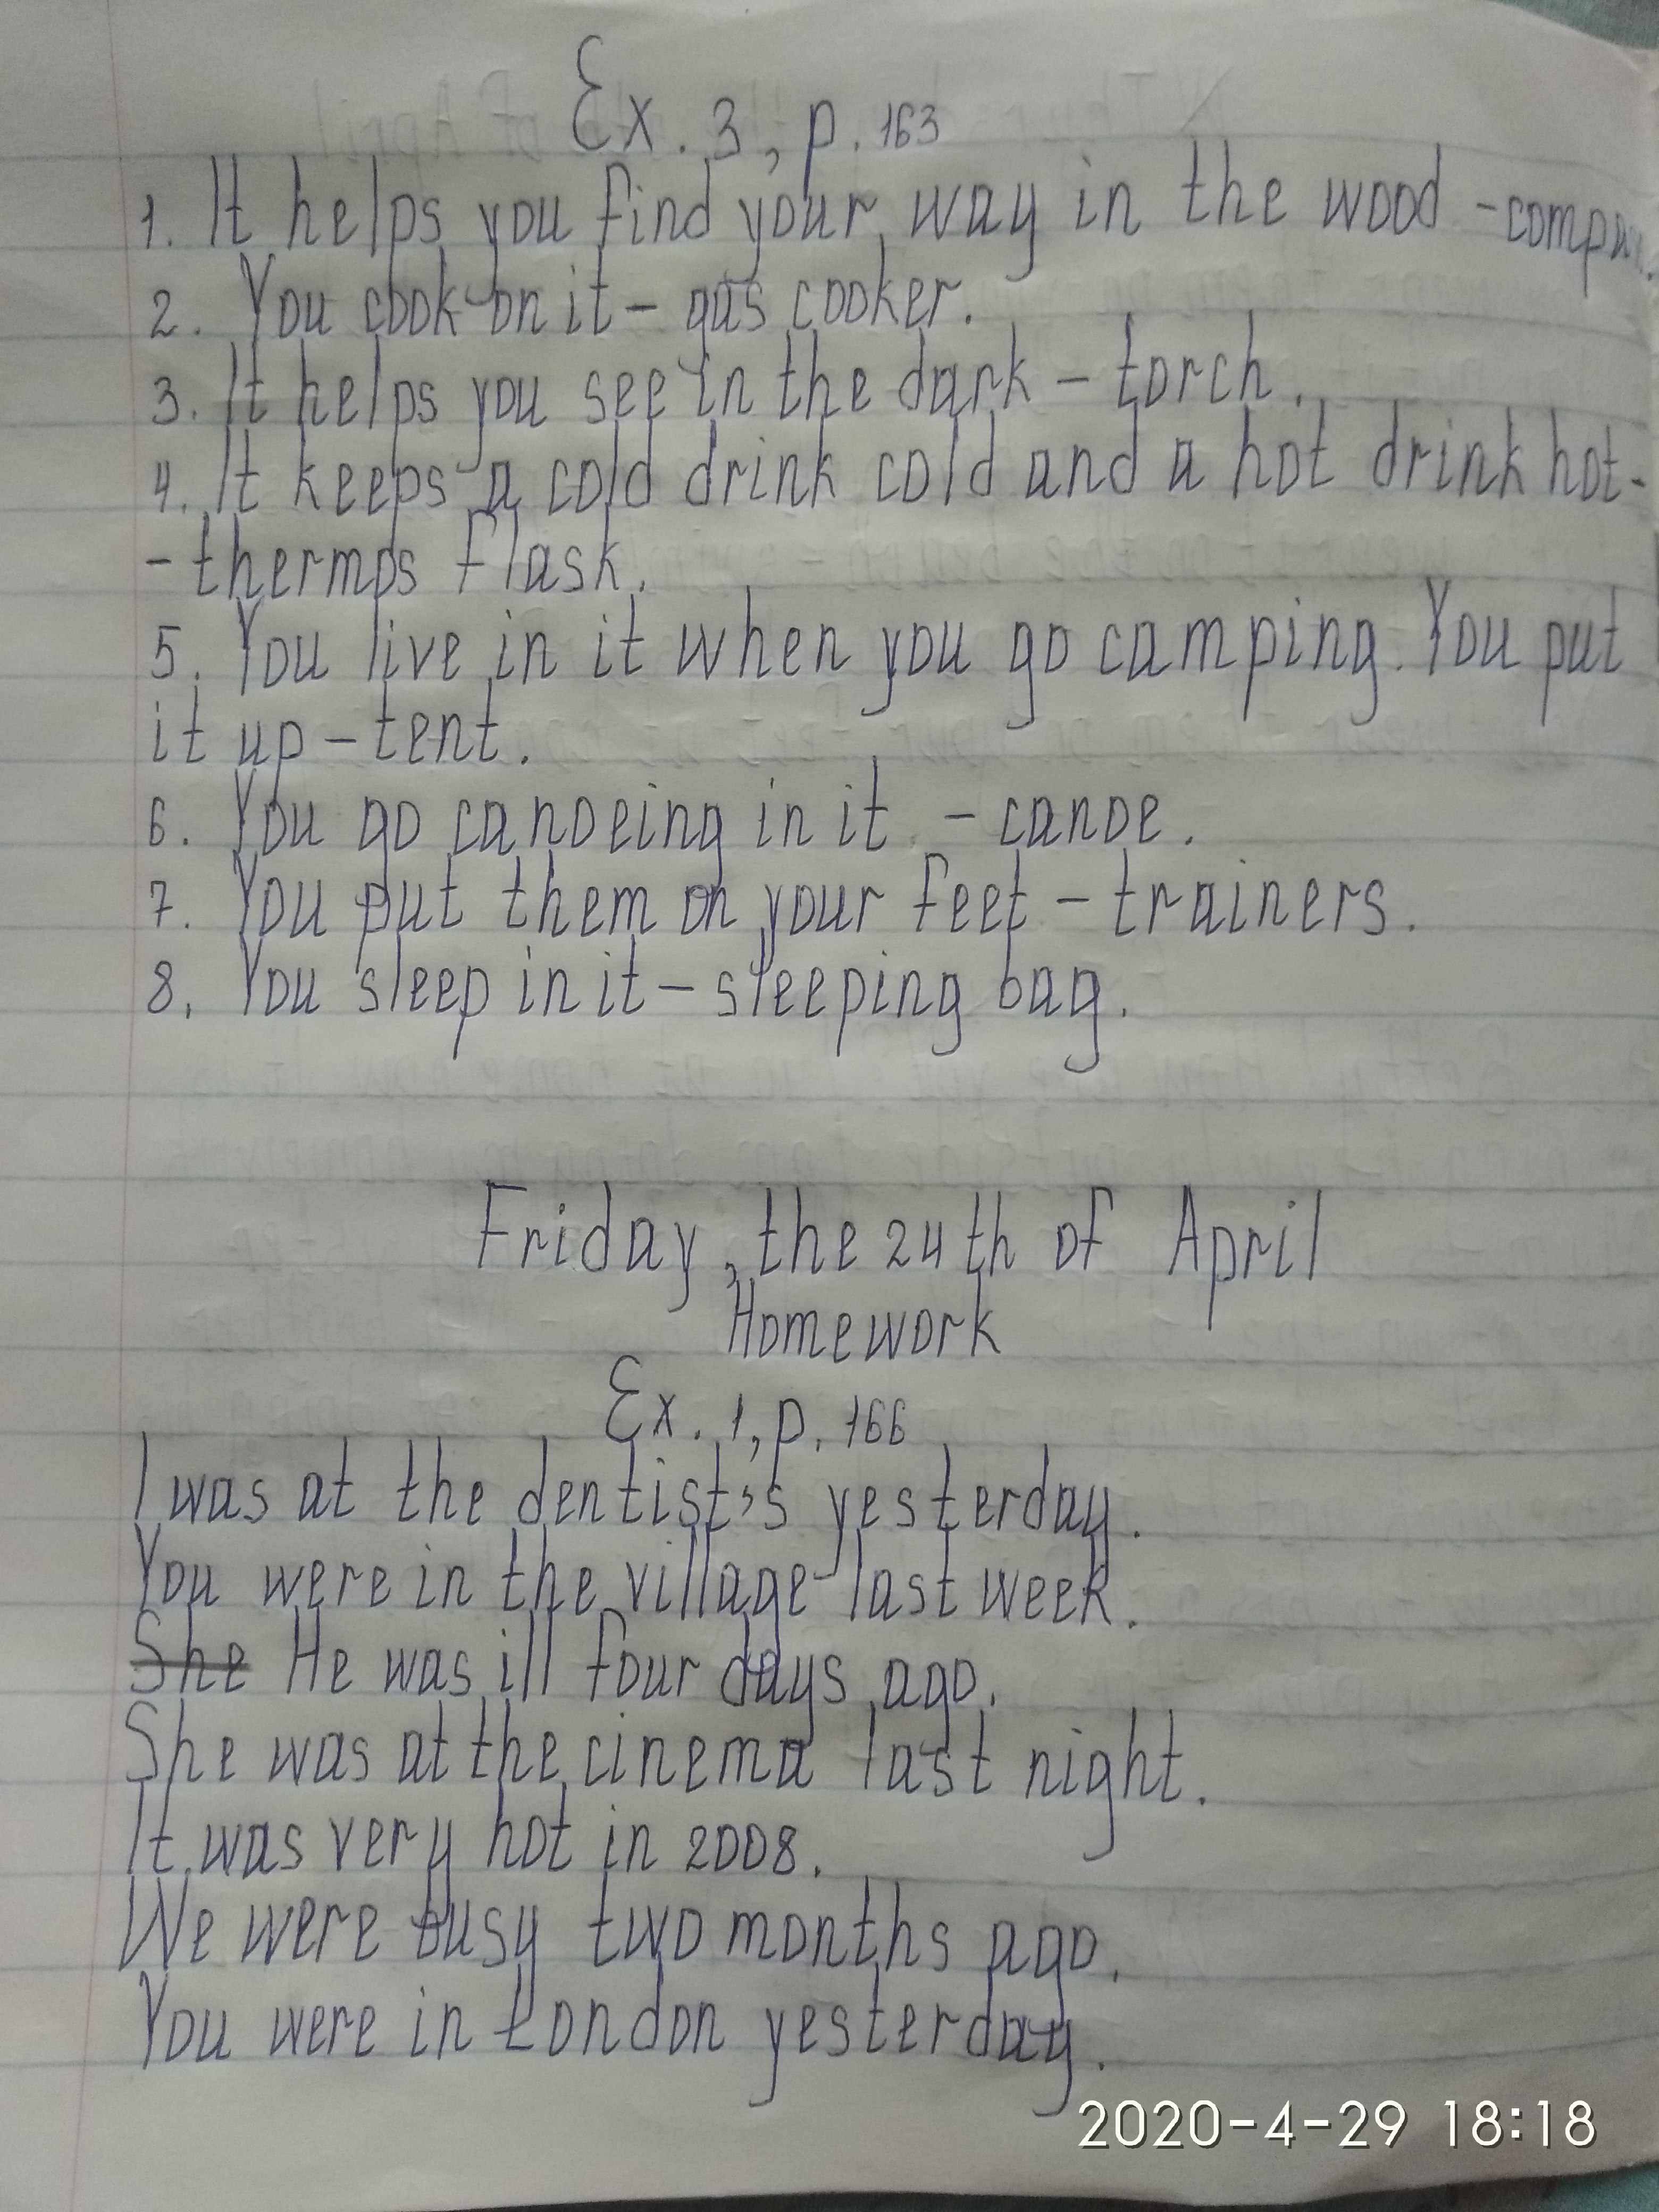 Ex. 3, p. 163
1. It helps you find your way in the wood -
2. You cook on it - gas cooker.
3. It helps you see in the dark - torch.
4. It keeps a cold drink cold and a hot drink hot-
- thermos flask.
5. You live in it when you go camping. You put
it up - tent.
6. You go canoeing in it - canoe.
7. You put them on your feet - trainers.
8. You sleep in it - sleeping bag.
Friday, the 24th of April
Homework
Ex. 1, p. 166
I was at the dentist's yesterday.
You were in the village last week.
She He was ill four days ago.
She was at the cinema last night.
It was very hot in 2008.
We were busy two months ago.
You were in London yesterday.
2020-4-29 18:18